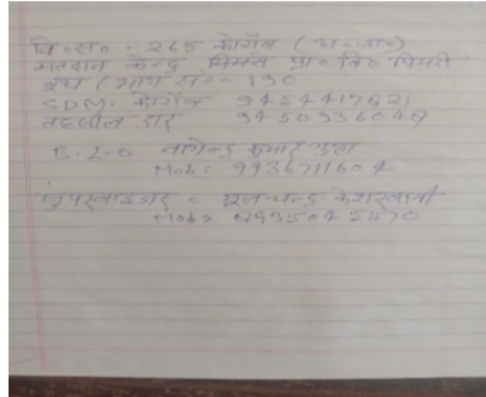 वि०स० - 265 कोराँव (अ०जा०)
मतदान केन्द्र पिपरी प्रा० वि० पिपरी
बूथ / भाग सं०- 130
S.D.M. कोराँव 9454417821
तहसील दार 9450936048
B.L.O नागेन्द्र कुमार
Mob: 9936711604
सुपरवाइजर = मूलचन्द्र केशरवानी
Mob: